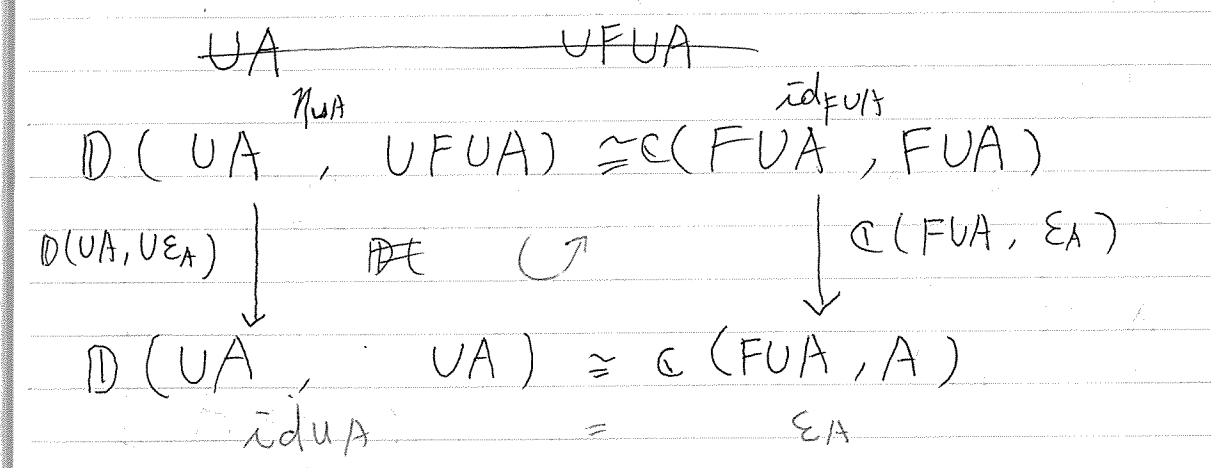 UA UFUA
η_{UA} id_{FUA}
𝔻(UA, UFUA) ≅ ℂ(FUA, FUA)
𝔻(UA, Uε_A) ↓ ↺ ↓ ℂ(FUA, ε_A)
𝔻(UA, UA) ≅ ℂ(FUA, A)
id_{UA} = ε_A